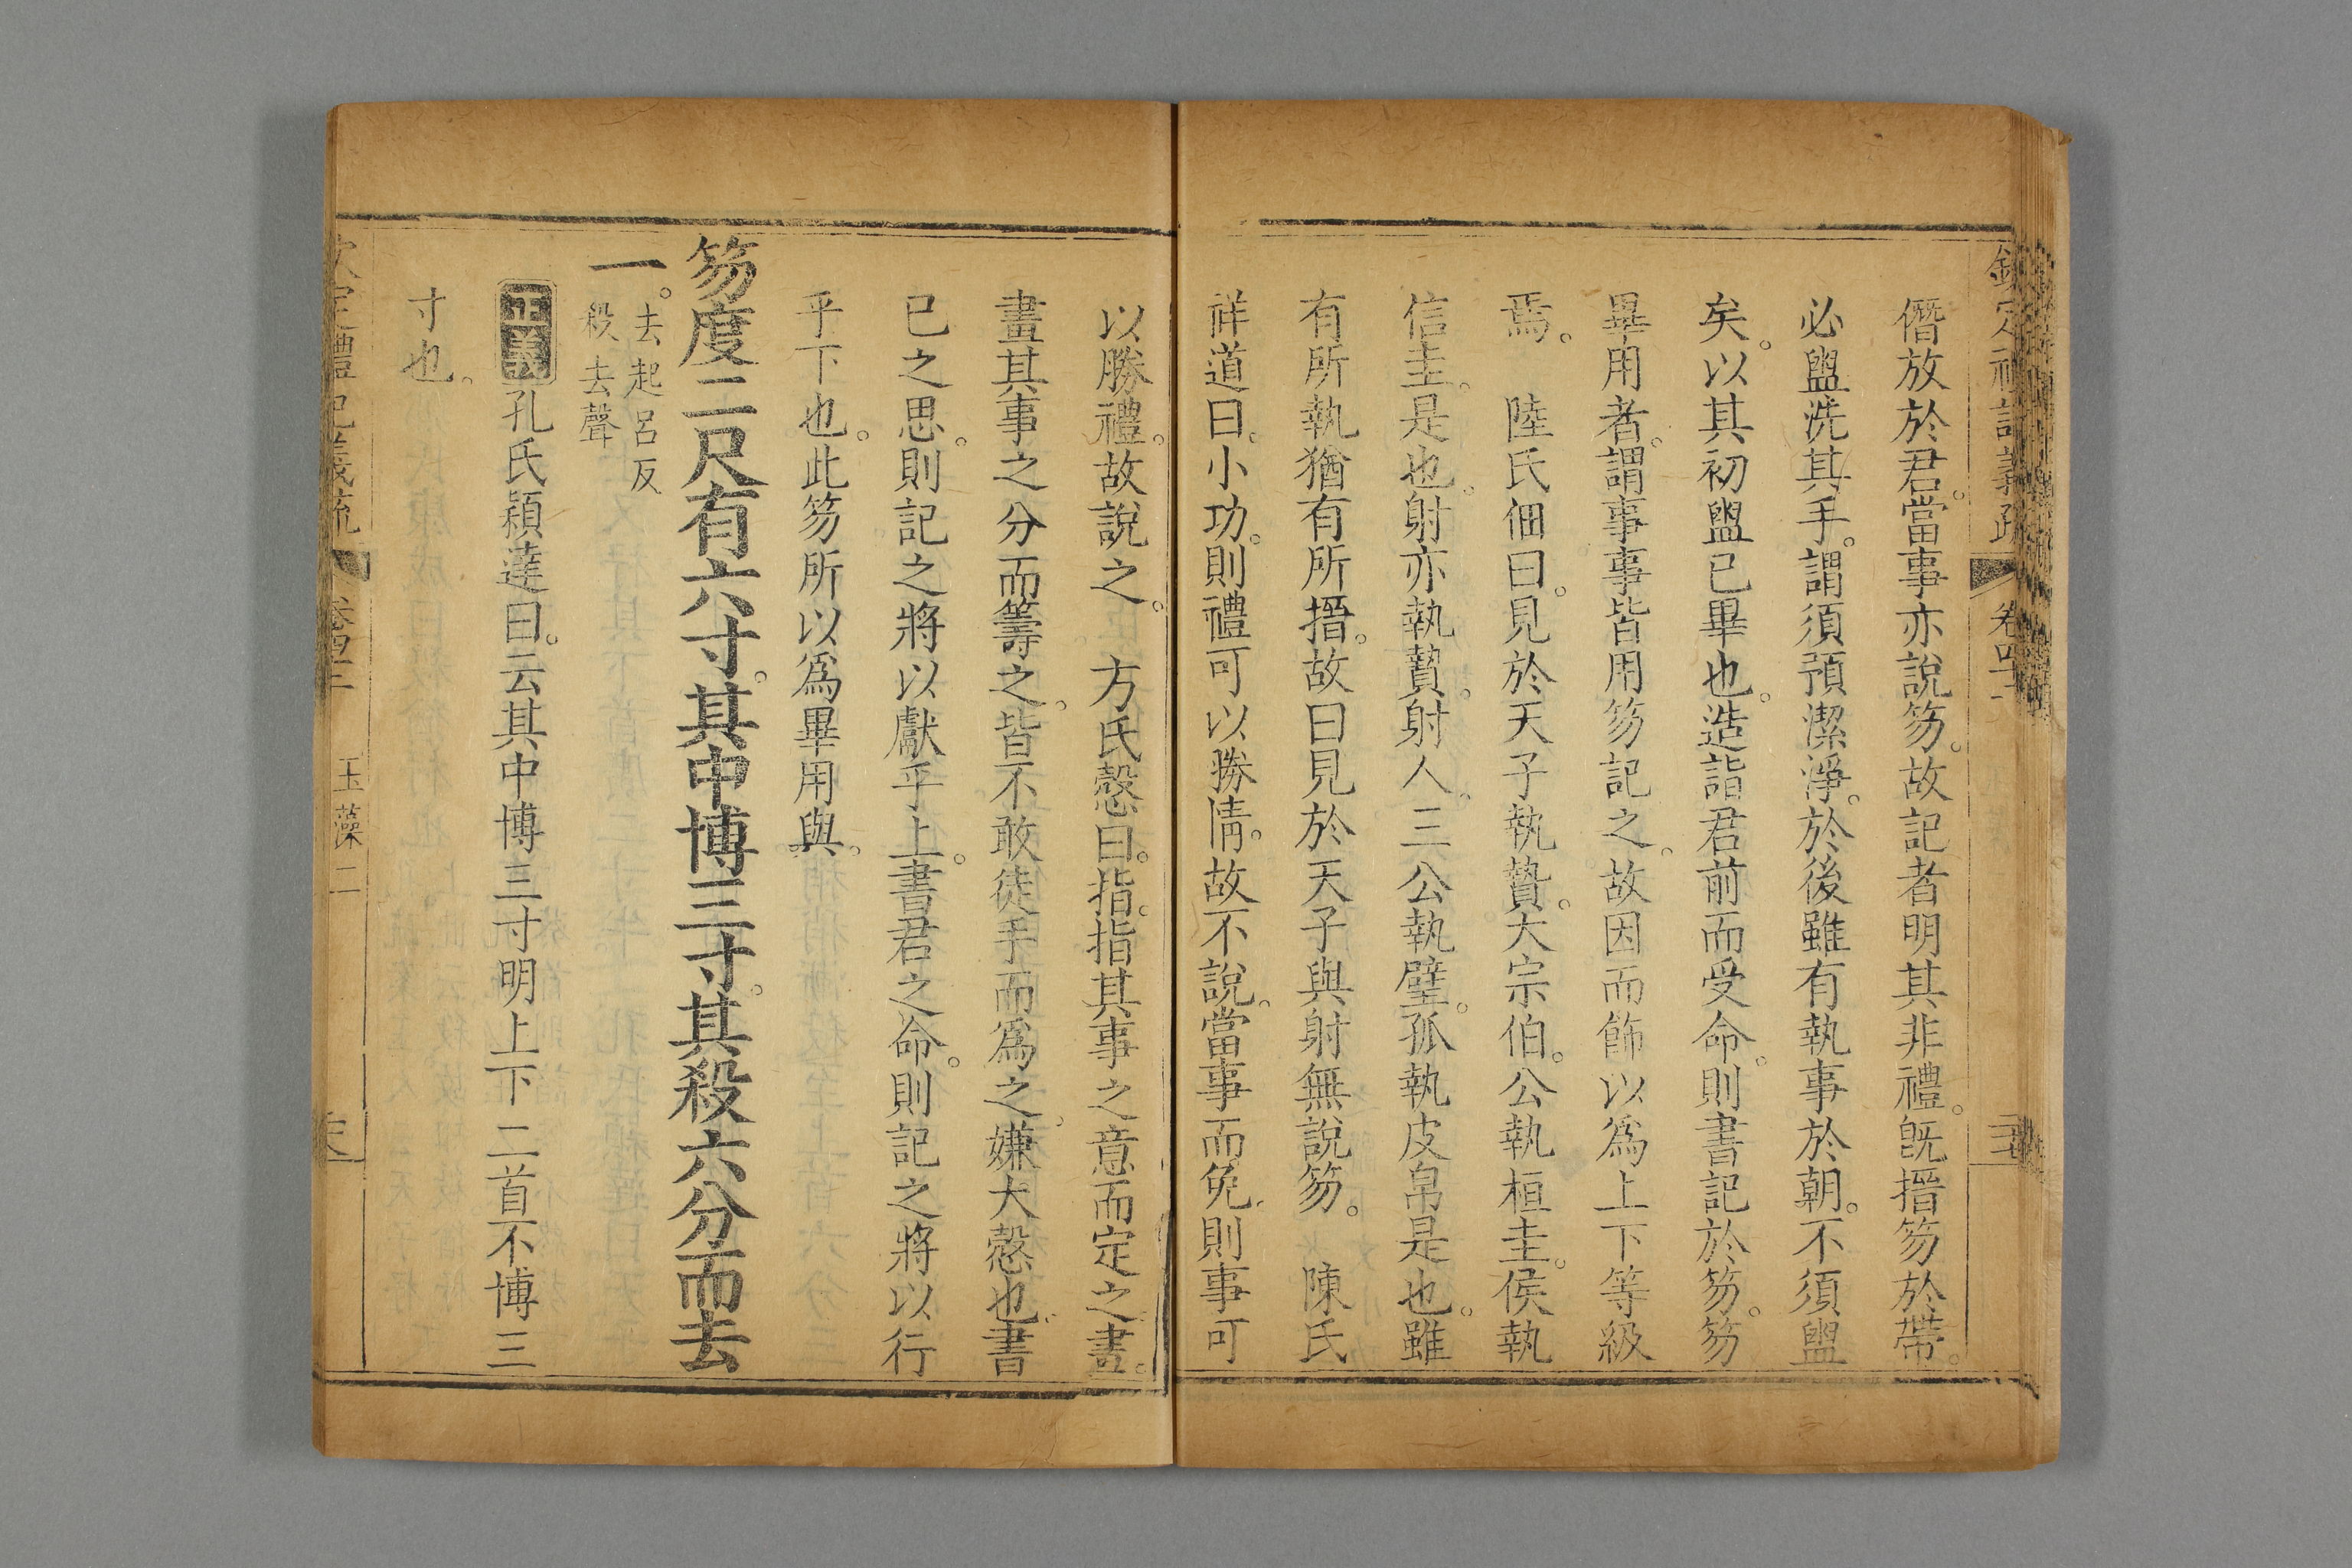 欽定禮記義疏 卷四十
僭放於君。當事亦說笏。故記者明其非禮。旣搢笏於帶。
必盥洗其手。謂須預潔淨。於後雖有執事於朝。不須盥
矣。以其初盥已畢也。造詣君前而受命。則書記於笏。笏
畢用者。謂事事皆用笏記之。故因而飾以爲上下等級
焉。 陸氏佃曰。見於天子執贄。大宗伯。公執桓圭。侯執
信圭。是也。射亦執贄。射人。三公執璧。孤執皮帛是也。雖
有所執猶有所搢。故曰見於天子與射無說笏。 陳氏
祥道曰。小功。則禮可以勝情。故不說。當事而免。則事可
以勝禮。故說之。 方氏慤曰。指。指其事之意而定之。畫。
畫其事之分而籌之。皆不敢徒手而爲之。嫌大慤也。書
已之思。則記之將以獻乎上。書君之命。則記之將以行
乎下也。此笏所以爲畢用與。
笏度二尺有六寸。其中博三寸。其殺六分而去
一。去起呂反
殺去聲
正義 孔氏穎達曰。云其中博三寸明上下二首不博三
寸也。
欽定禮記義疏 卷四十二 玉藻二